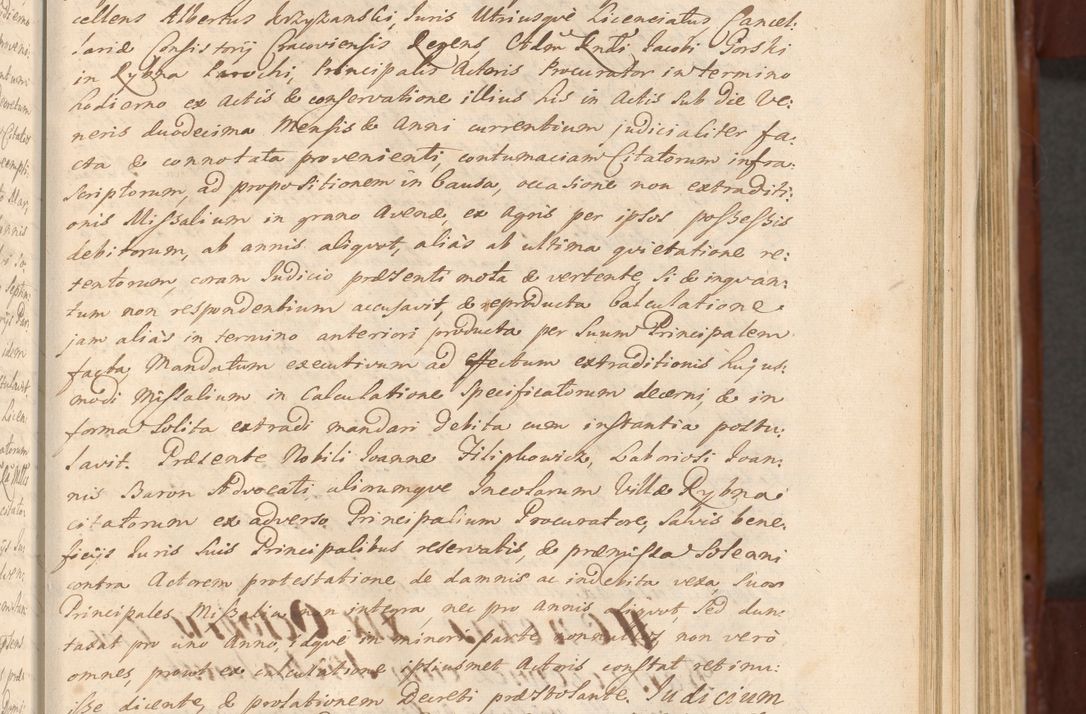 cellens Albertus Krzyżanski, Juris Utriusqve Licenciatus Cancel:
lariæ Consistorij Cracoviensis Regens Admˢ Rndi Jacobi Gorski
in Rybna Parochi, Principalis Actoris Procurator in termino
hodierno ex Actis & conservatione illius his in Actis sub die Ve:
neris duodecima Mensis & Anni currentium judicialiter fa:
cta & connotata provenienti, contumaciam Citatorum infra:
scriptorum, ad propositionem in Causa, occasione non extraditi:
onis Missalium in grano Avenæ, ex Agris per ipsos possessis
debitorum, ab annis aliqvot, aliàs ab ultima qvietatione re:
tentorum, coram Judicio præsenti mota & vertente, si & inqvan:
tum non respondentium accusavit, & reproducta Calculatione
jam aliàs in termino anteriori producta per Suum Principalem
facta, Mandatum executivum ad effectum extraditionis hujus:
modi Missalium in Calculatione Specificatorum decerni, & in
forma Solita extradi mandari debita cum instantia postu:
lavit. Præsente Nobili Joanne Filipkowicz, Laboriosi Joan:
nis Baron Advocati aliorumqve Incolarum Villæ Rybna
citatorum ex adverso Principalium Procuratore, Salvis bene:
ficijs Juris Suis Principalibus reservatis, & præmissa Solenni
contra Actorem protestatione de damnis ac indebita vexa, Suos
Principales Missalia non integra, nec pro Annis aliqvot, Sed dun:
taxat pro uno Anno, idqve in minori parte nonnullos non verò
omnes, prout ex calculatione ipsiusmet Actoris constat retinu:
isse dicente, & prolationem Decreti præstolante. Judicium